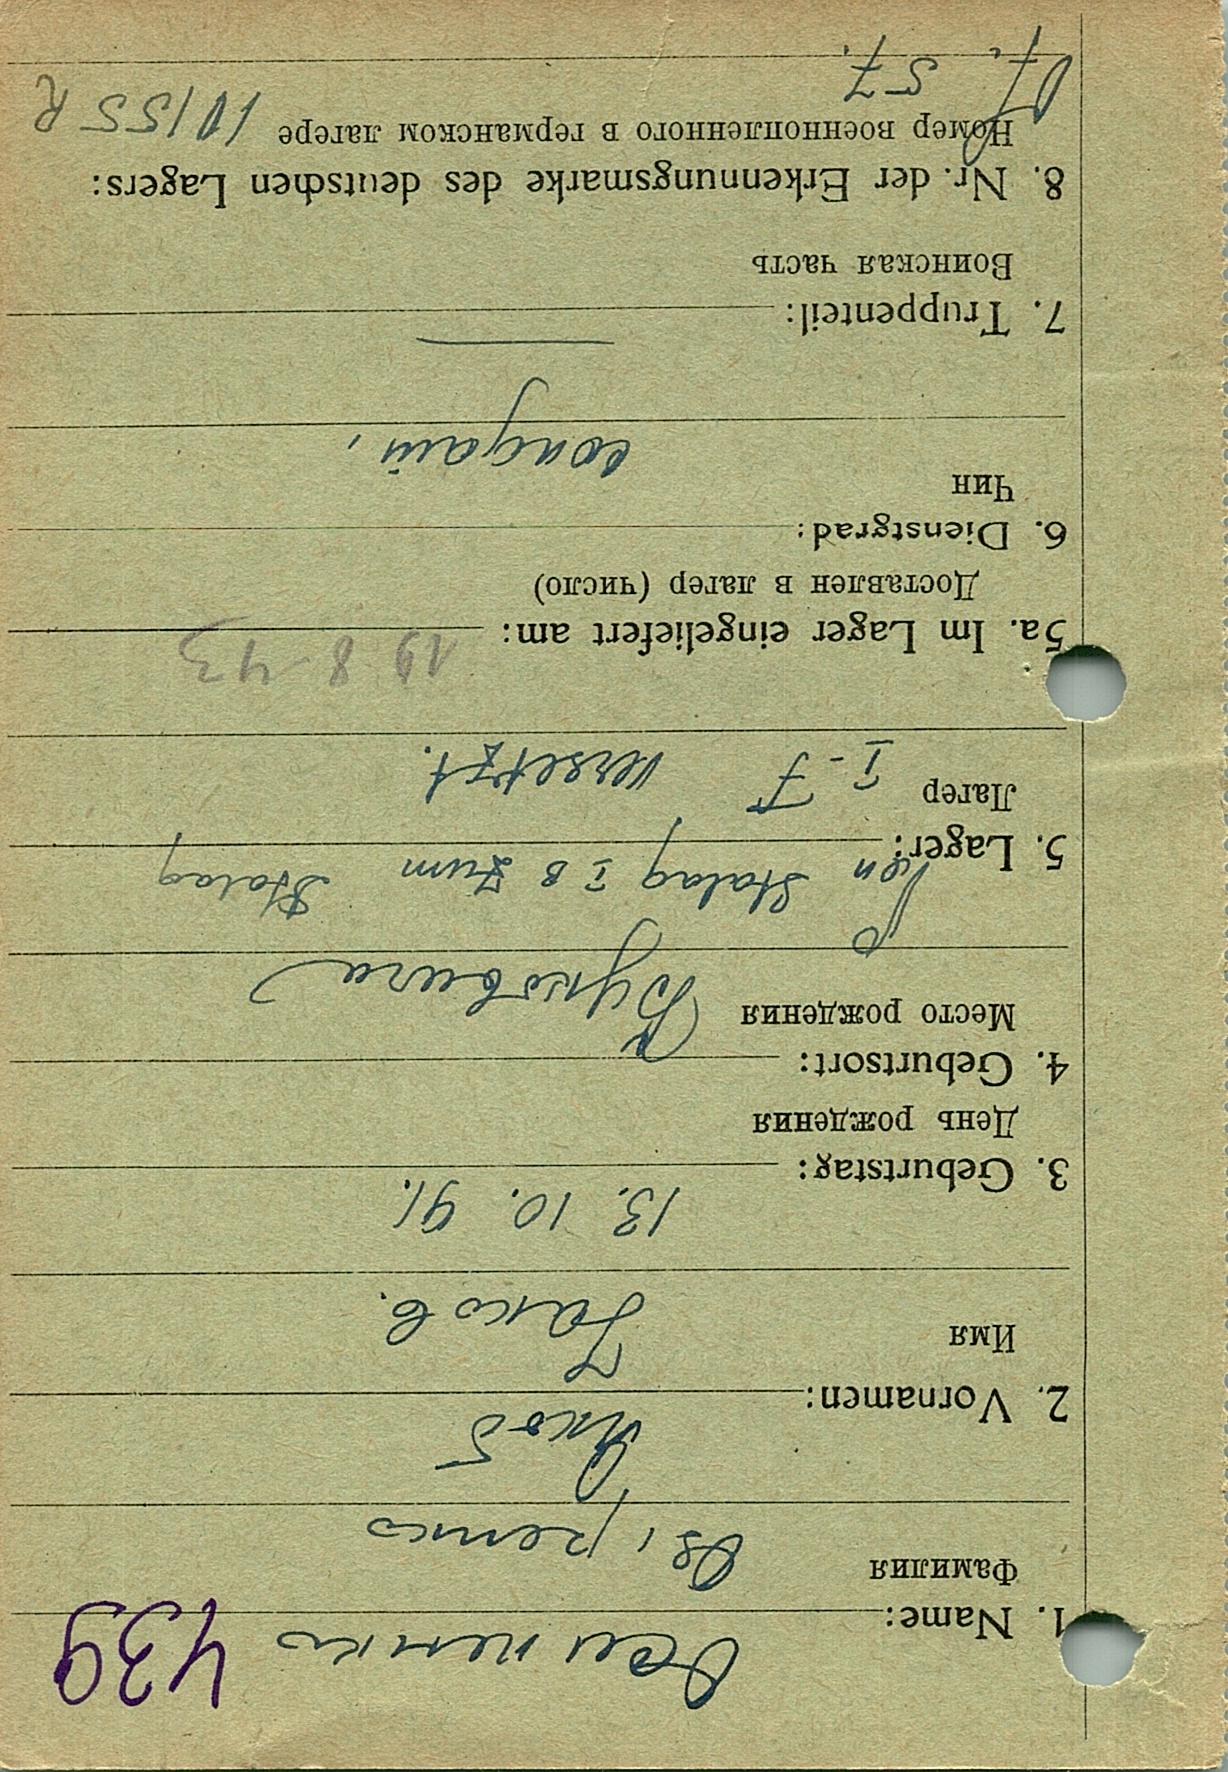 439
1. Name:
Фамилия
2. Vornamen:
Якоб
Имя
Яков.
3. Geburtstag: 13. 10. 91.
День рождения
4. Geburtsort:
Место рождения Буковина
5. Lager: Von Stalag I B zum Stalag
Лагер I - F versetzt.
5a. Im Lager eingeliefert am: 19 8 43
Доставлен в лагер (число)
6. Dienstgrad:
Чин солдат,
7. Truppenteil: —
Воинская часть
8. Nr. der Erkennungsmarke des deutschen Lagers:
Номер военнопленного в германском лагере 10155 R
57.